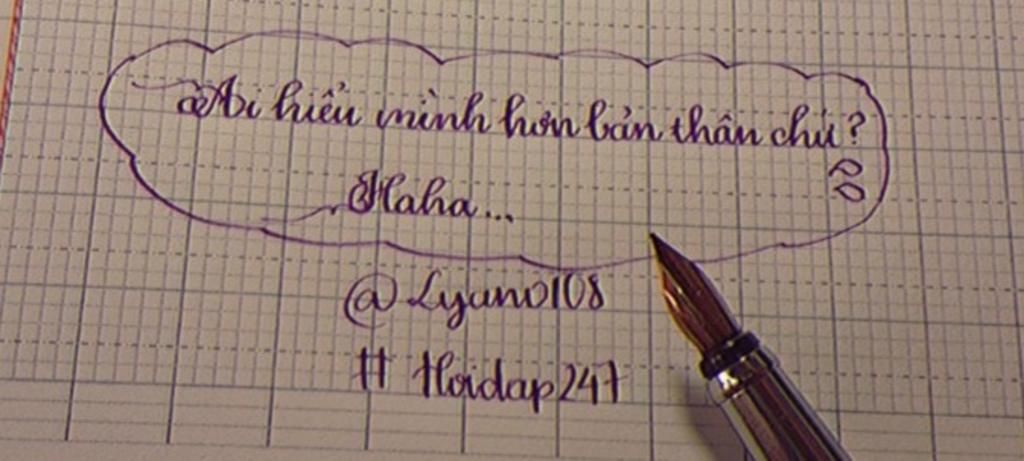 Ai hiểu mình hơn bản thân chứ?
Haha...
@Lyuno108
# Hoidap247